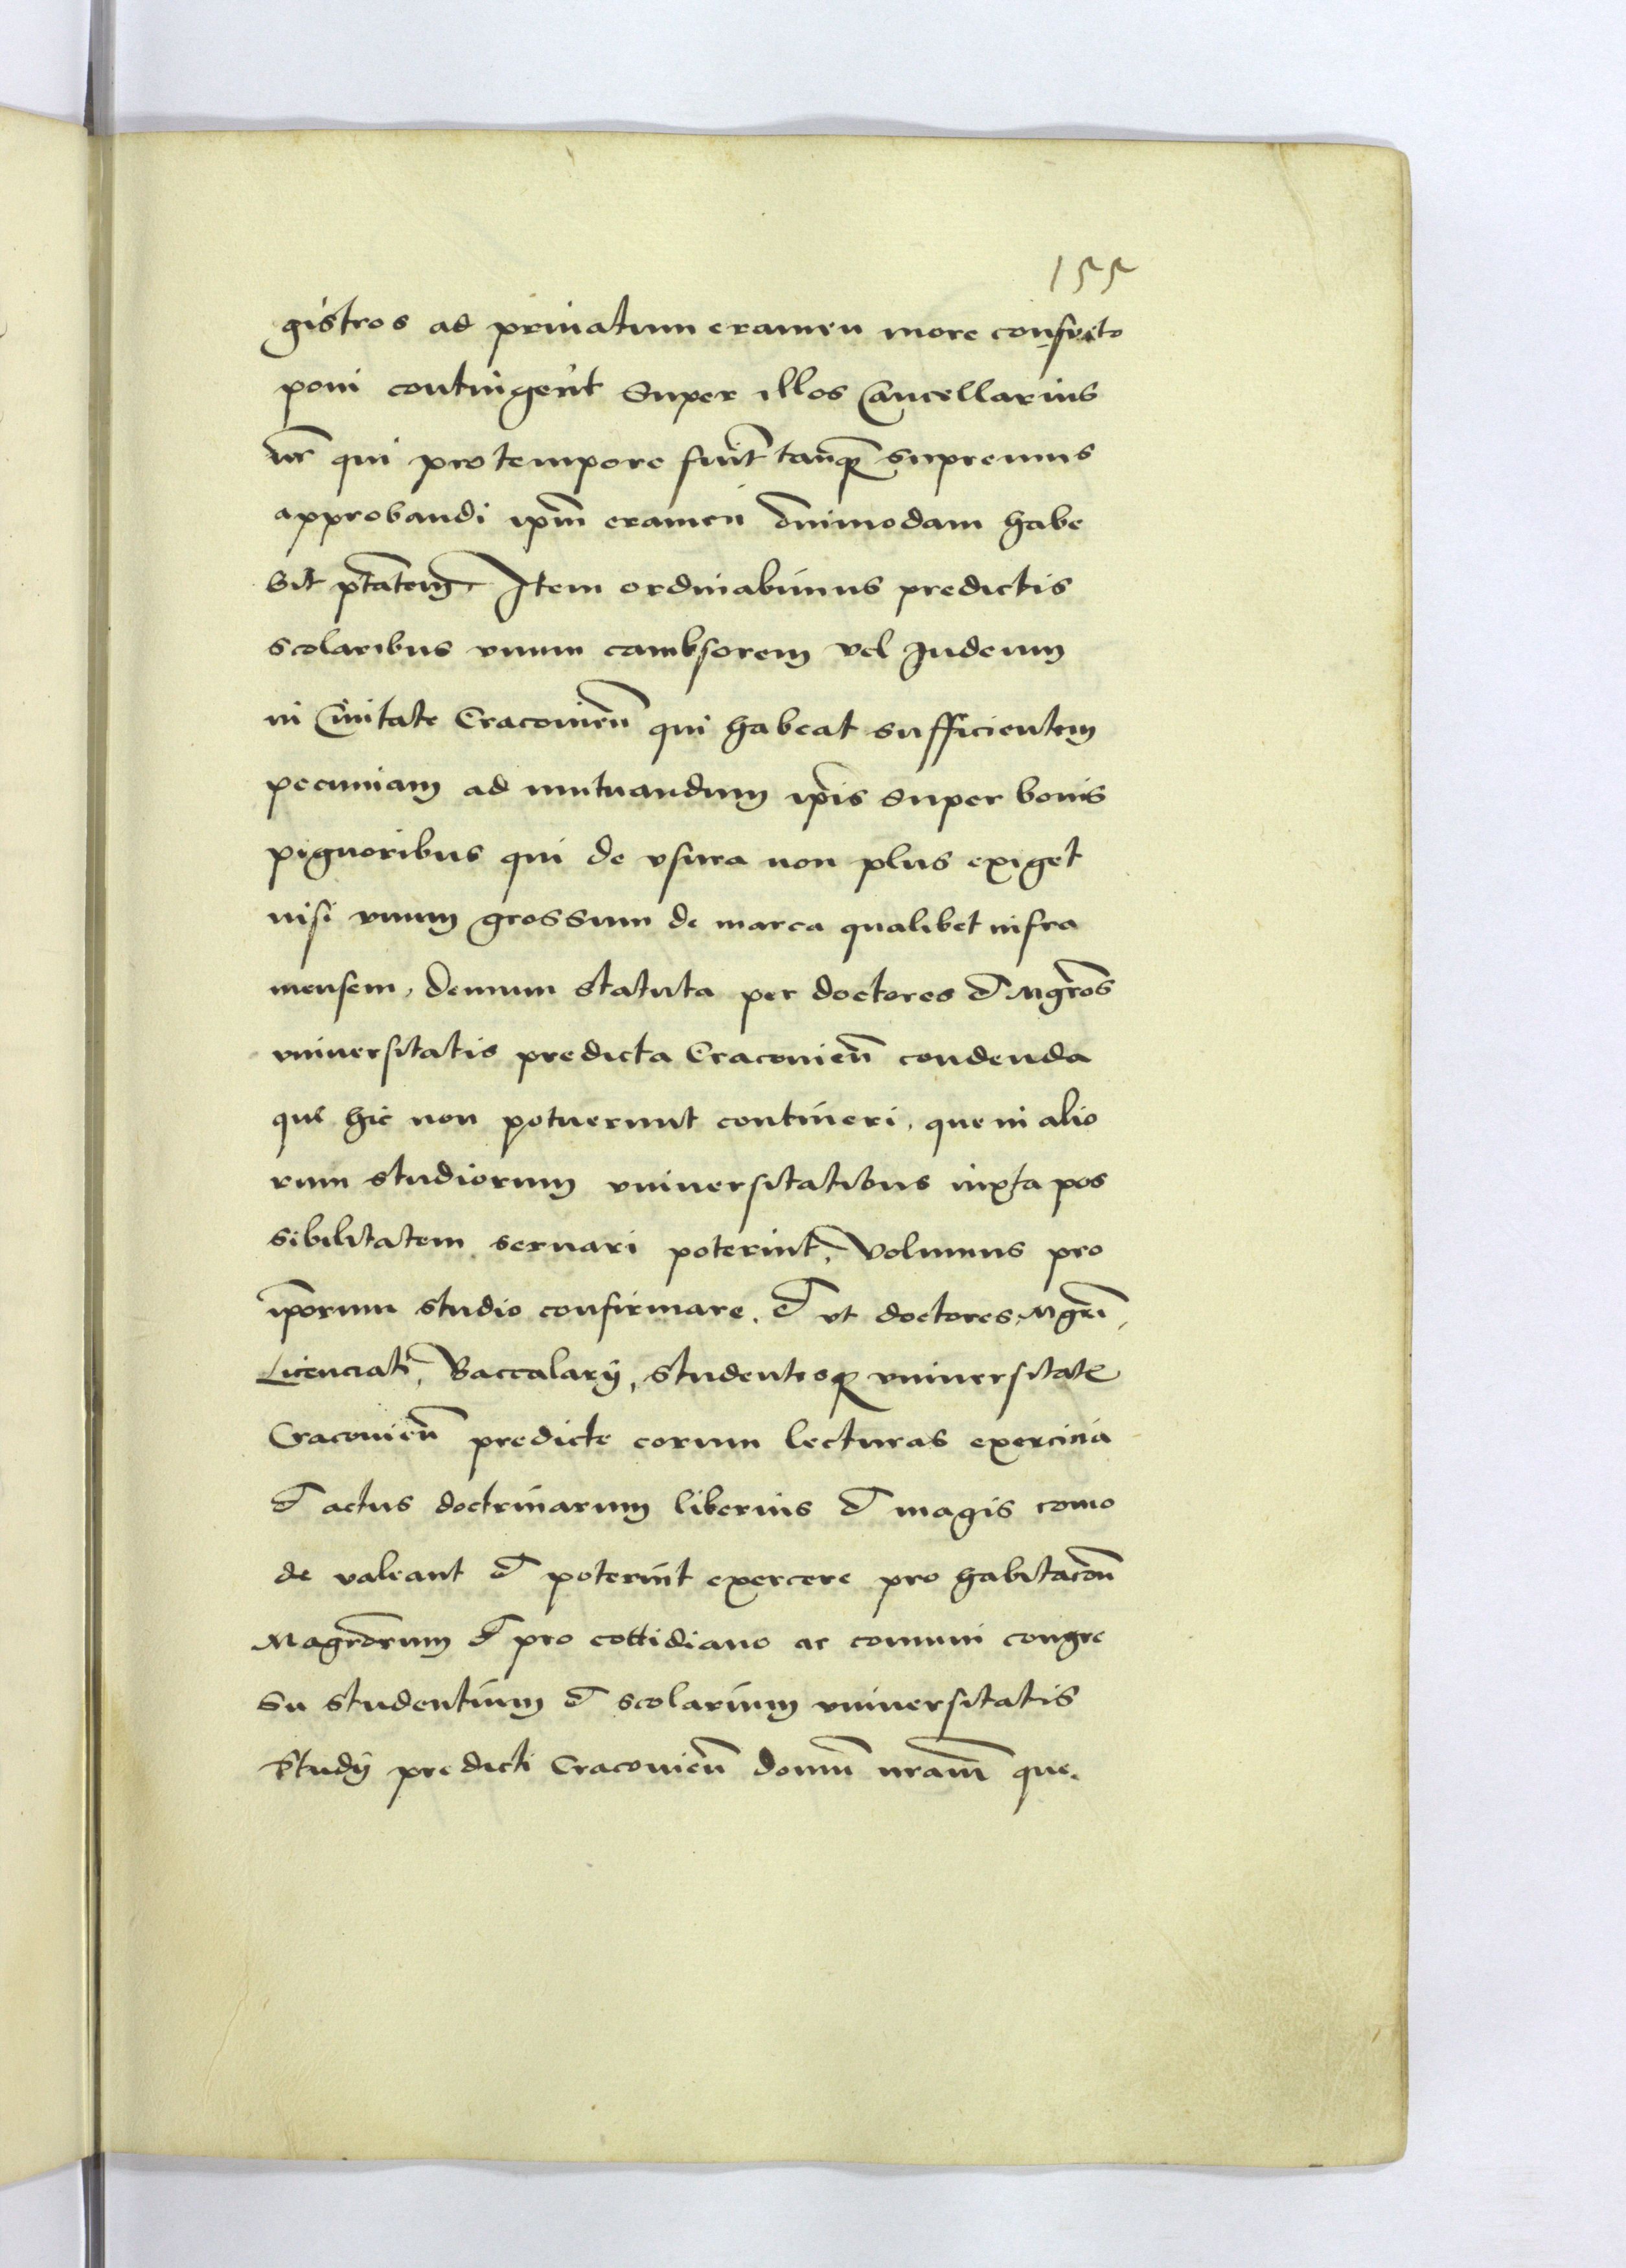 155
gistros ad priuatum examen more consueto
poni contingerit Super illos Cancellarius
nr̄ qui pro tempore fuit̄ tanq̄ supremus
approbandi ip̄m examen om̄nimodam habe
bit ptātem Item ordinabimus predictis
scolaribus vnum cambsorem vel Judeum
in Ciuitate Cracouien̄ qui habeat sufficientem
pecuniam ad mutuandum ip̄is super bonis
pignoribus qui de vsura non plus exiget
nisi vnum grossum de marca qualibet infra
mensem, demum statuta per doctores et Mgr̄os
vniuersitatis predicta Cracouien̄ condenda
que hic non potuerunt contineri, que in alio
rum studiorum vniuersitatibus iuxta pos
sibilitatem seruari poterint, Volumus pro
ip̄orum studio confirmare. et vt doctores, Mgr̄i,
Licenciati, Baccalarÿ, studentesq̄ vniuersitatę
Cracouien̄ predicte eorum lecturas exercicia
et actus doctrinarum liberius et magis como
de valeant et poterint exercere pro habitacōn
Magr̄orum et pro cottidiano ac comuni congre
su studentium et scolarium vniuersitatis
Studÿ predicti Cracouien̄ domū nr̄am que.